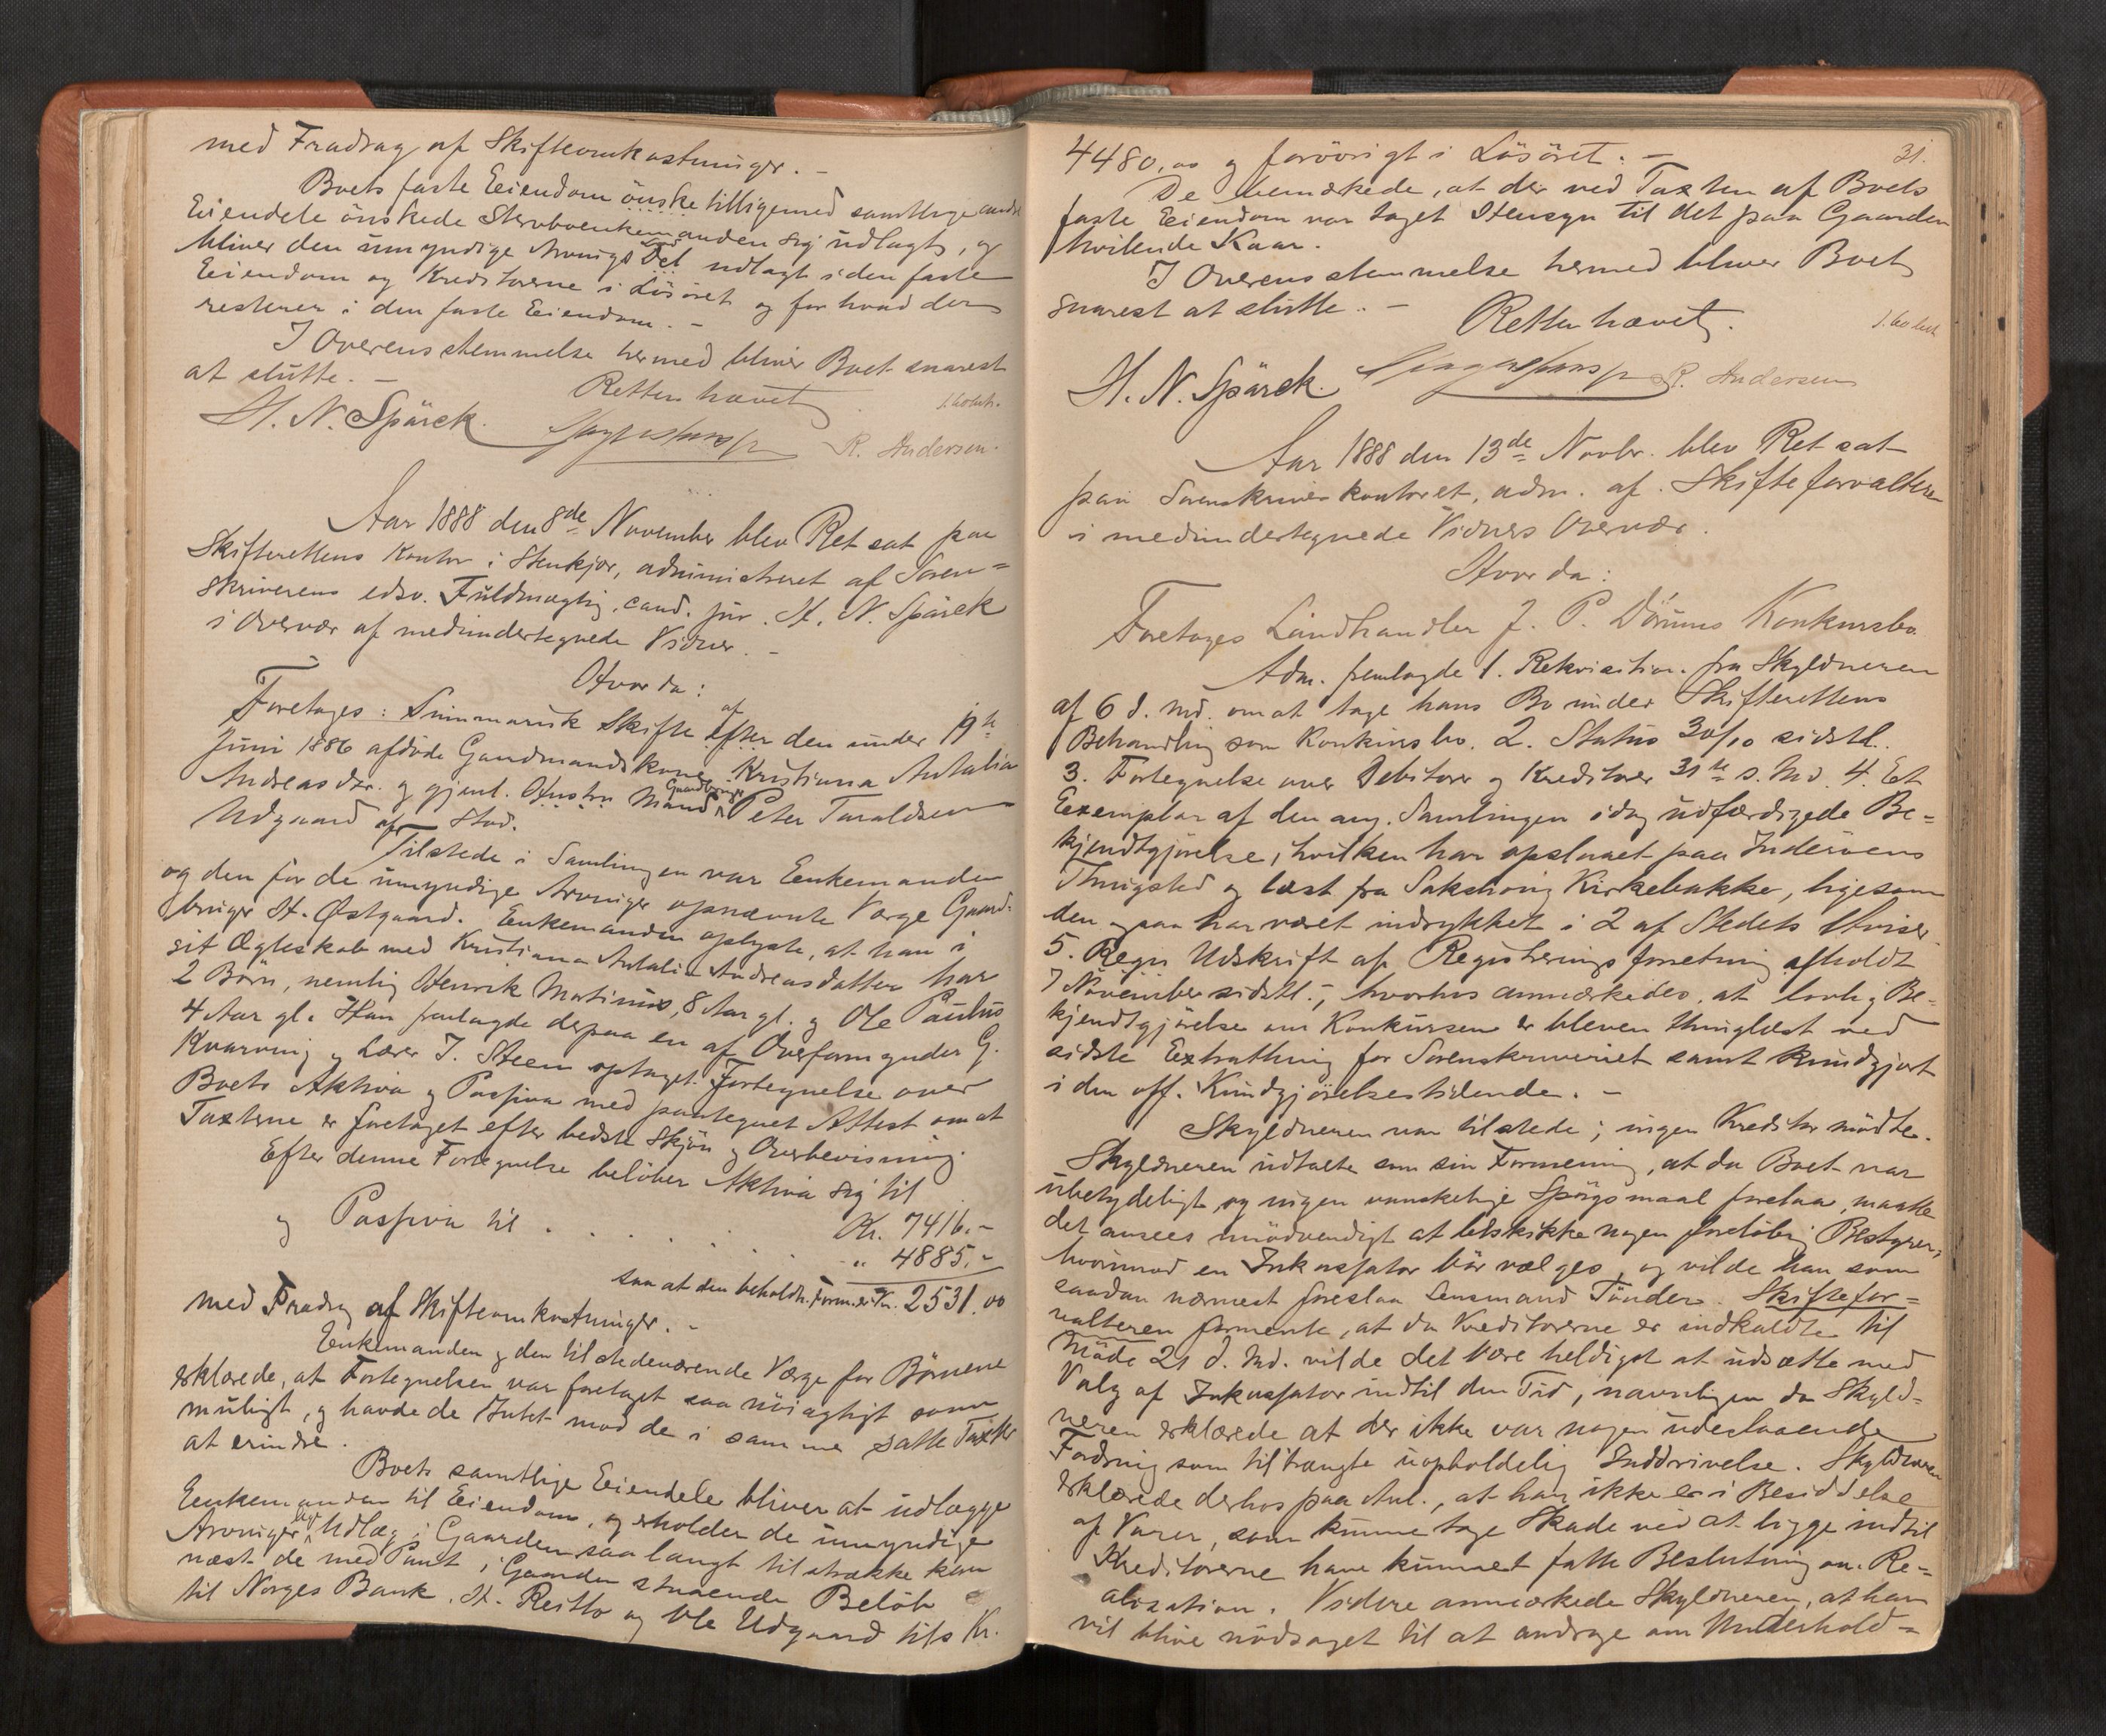 med Fradrag af Skifteomkostninger. -
Boets faste Eiendom önske tilligemed samtlige andre
Eiendele önskede Stervboenkemanden sig udlagt, og
bliver den umyndige Arvings Lod udlagt i den faste
Eiendom og Kreditorerne i Lösöret og for hvad der
resterer i den faste Eiendom. -
I Overensstemmelse hermed bliver Boet snarest
at slutte. -
Retten hævet
H. N. Spärck.
R. Andersen.
Aar 1888 den 8de November blev Ret sat paa
Skifterettens Kontor i Stenkjær, administreret af Soren=
skriverens edsv. Fuldmægtig, cand. jur. H. N. Spärck
i Overvær af medundertegnede Vidner. -
Hvor da:
Foretages: Summarisk Skifte efter af den under 19de
Juni 1886 afdöde Gaardmandskone Kristiana Antalia
Andreasdtr. og gjenl. Hustru Mand Gaardbruger Peter Taraldsen
Udgaard af Stod.
Tilstede i Samlingen var Enkemanden
og den for de umyndige Arvinger opnævnte Værge Gaard-
bruger H. Østgaard. Enkemanden oplyste, at han i
sit Ægteskab med Kristiana Antalia Andreasdatter har
2 Börn, nemlig Henrik Martinus, 8 Aar gl. og Ole Paulus
4 Aar gl. Han fremlagde derpaa en af Overformynder G.
Kvarving og Lærer J. Steen optaget Fortegnelse over
Boets Aktiva og Passiva med paategnet Attest om at
Taxterne er foretaget efter bedste Skjön og Overbevisning.
Efter denne Fortegnelse belöber Aktiva sig til
Kr. 7416.-
og Passiva til . . . . . " 4885.-
saa at den beholdn. Form. er Kr. 2531.00
med Fradrag af Skifteomkostninger. -
Enkemanden og den tilstedeværende Værge for Börnene
erklærede, at Fortegnelsen var foretaget saa nöiagtigt som
muligt, og havde de Intet mod de i samme satte Taxter
at erindre.
Boets samtlige Eiendele bliver at udlægge
Enkemanden til Eiendom, og erholder de umyndige
Arvinger Udlæg i Gaarden saa langt tilstrække kan
næst de med Pant i Gaarden staaende Beløb
til Norges Bank, H. Reitlo og Ole Udgaard tils. Kr.
31.
4480,00 og forövrigt i Lösöret. -
De bemærkede, at der ved Taxten af Boets
faste Eiendom var taget Hensyn til det paa Gaarden
hvilende Kaar.
I Overensstemmelse hermed bliver Boet
snarest at slutte. -
Retten hævet.
H. N. Spärck.
R. Andersen
Aar 1888 den 13de Novbr. blev Ret sat
paa Sorenskriverkontoret, adm. af Skifteforvalteren
i medundertegnede Vidners Overvær.
Hvor da:
Foretages Landhandler J. P. Dörums Konkursbo.
Adm. fremlagde 1. Rekvisition fra Skyldneren
af 6 d. Md. om at tage hans Bo under Skifterettens
Behandling som Konkursbo. 2. Status 30/10 sidstl.
3. Fortegnelse over Debitorer og Kreditorer 31te s. Md. 4. Et
Exemplar af den ang. Samlingen idag udfærdigede Be=
kjendtgjörelse, hvilken har opslaaet paa Inderöens
Thingsted og læst fra Sakshoug Kirkebakke, ligesom
den ogsaa har været indrykket i 2 af Stedets Aviser.
5. Regis Udskrift af Registreringsforretning afholdt
7 November sidstl.-, hvorhos anmærkedes, at lovlig Be=
kjendtgjörelse om Konkursen er bleven thinglæst ved
sidste Extrathing for Sorenskriveriet samt kundgjort
i den off. Kundgjörelsestidende. -
Skyldneren var tilstede; ingen Kreditor mödte.
Skyldneren udtalte som sin Formening, at da Boet var
ubetydeligt og ingen vanskelige Spörgsmaal forelaa, maatte
det ansees unödvendigt at beskikke nogen foreløbig Bestyrer,
hvorimod en Inkassator bör vælges, og vilde han som
saadan nærmest foreslaa Lensmand Tönder. Skiftefor=
valteren formente, at da Kreditorerne er indkaldte til
Möde 21 d. Md. vilde det være heldigst at udsætte med
Valg af Inkassator indtil den Tid, navnligen da Skyld-
neren erklærede at der ikke var nogen udestaaende
Fordring som tiltrængte uopholdelig Inddrivelse. Skyldneren
erklærede derhos paa Anl., at han ikke er i Besiddelse
af Varer, som kunne tage Skade ved at ligge indtil
Kreditorerne have kunnet fatte Beslutning om Re=
alisation. Videre anmærkede Skyldneren, at han
vil blive nödsaget til at andrage om Underhold=